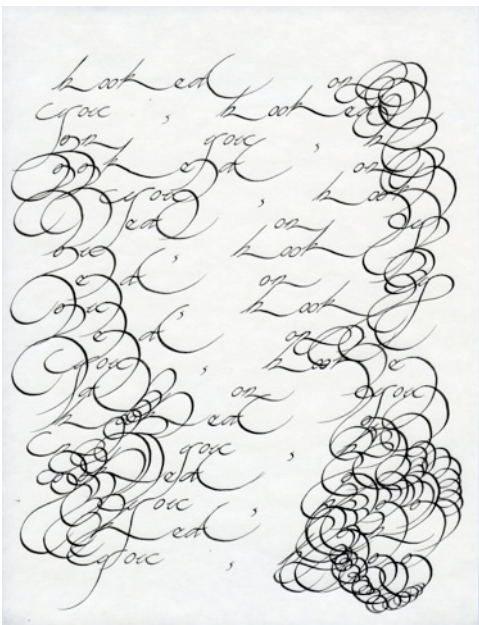 hooked on
you, hooked
on you, h
ooked on
you, hook
ed on y
ou, hook
ed on y
ou, hook
ed on
you, hooke
d on you
hooked
on you,
ed
you
ked
you,